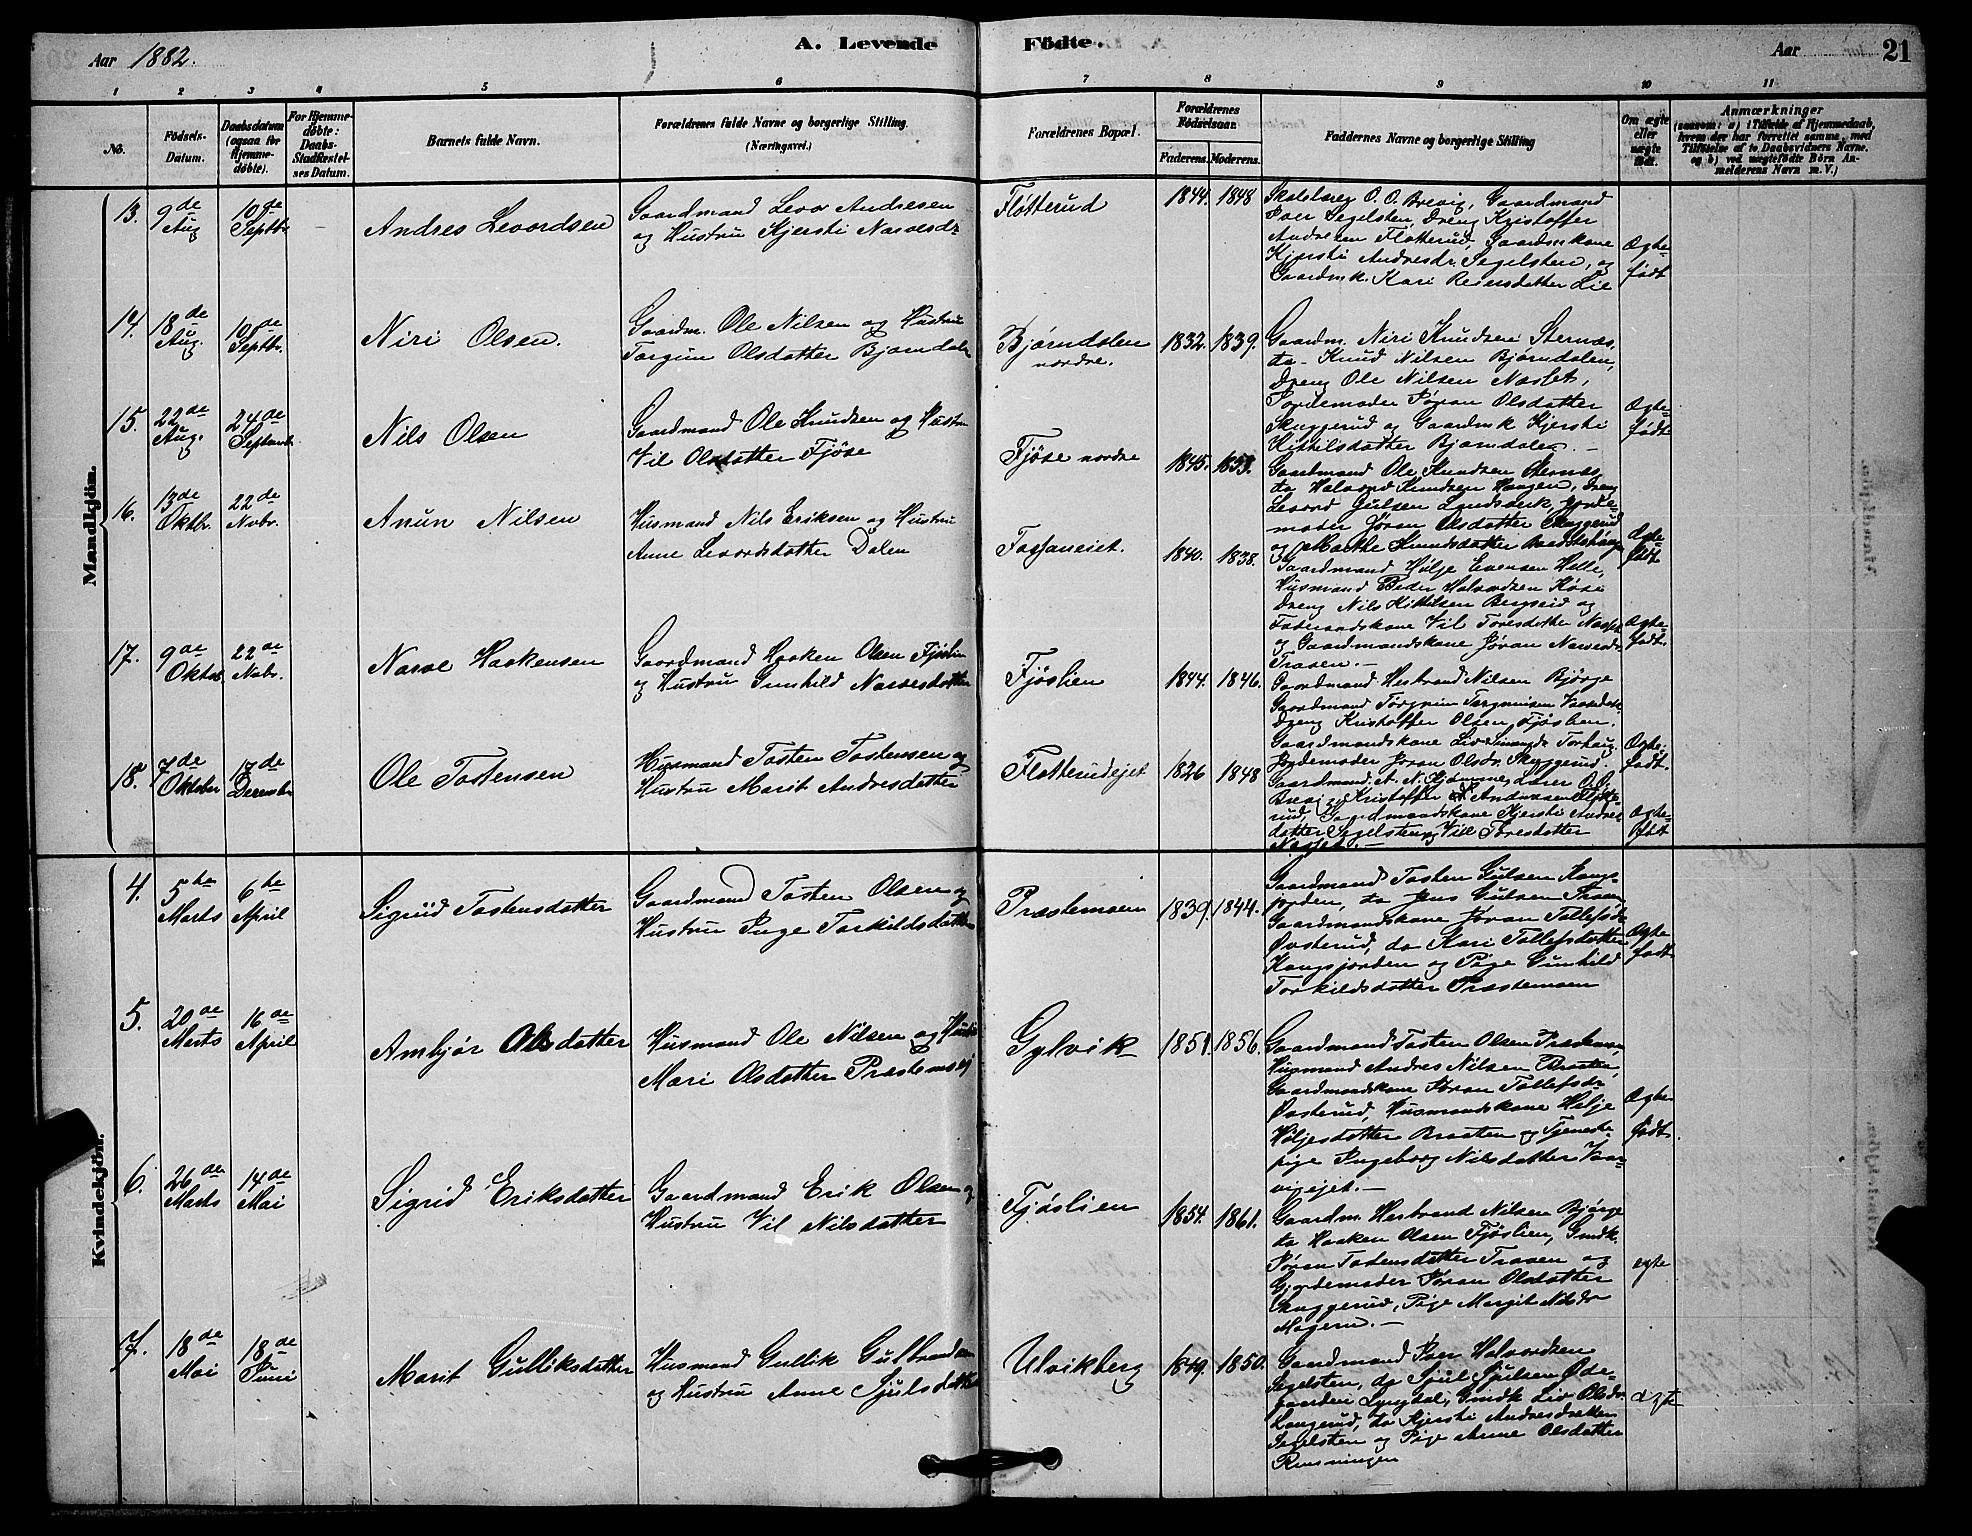 Aar 1882.
A. Levende Födte.
Aar
21
1 2 3 4 5 6 7 8 9 10 11
No.
Födsels-Datum.
Daabsdatum (ogsaa for Hjemmedöbte).
For Hjemmedöbte: Daabs-Stadfæstelses Datum.
Barnets fulde Navn.
Forældrenes fulde Navne og borgerlige Stilling. (Næringsvei.)
Forældrenes Bopæl.
Forældrenes Födselsaar.
Faderens. Moderens.
Faddernes Navne og borgerlige Stilling
Om ægte eller uægte födt.
Anmærkninger
(saasom: a) i Tilfælde af Hjemmedaab, hvem der har forrettet samme, med Tilföielse af to Daabsvidners Navne, og b) ved uægtefödte Börn Anmelderens Navn m. V.)
Mandkjön.
13. 9de Aug 10de Septbr. Andres Levordsen
Gaardmand Levor Andresen
og Hustru Kjersti Narvesdr.
Fløtterud 1844. 1848
Skolelærer O. O. Brevig, Gaardmand
Iver Segelsten, Dreng Kristoffer
Andresen Fløtterud, Gaardmskone
Kjersti Andresdr. Segelsten, og
Gaardmk. Kari Reiersdatter Lie
Ægtefødt
14. 18de Aug. 10de Septbr. Niri Olsen.
Gaardm. Ole Nilsen og Hustru
Torgun Olsdatter Bjørndalen
Bjørndalen nordre. 1832. 1839.
Gaardm. Niri Knudsen Sternæs,
do- Knud Nilsen Bjørndalen,
Dreng Ole Nilsen Næsset,
Jordemoder Jøran Olsdatter
Skuggerud og Gaardmk Kjersti
Kittilsdatter Bjørndalen. –
Ægtefødt
15. 22de Aug. 24de Septemb. Nils Olsen
Gaardmand Ole Knudsen og Hustru
Vil Olsdatter Fjöse
Fjöse nordre 1845. 1853.
Gaardmand Ole Knudsen Sternæs
do Halvord Knudsen Haugen, Dreng
Levord Gulsen Lyndsbæk, Jorde-
moder Jøran Olsdatter Skuggerud
og Marthe Knudsdatter
Ægtefødt
16. 13de Oktbr. 22de Nobr. Anun Nilsen
Husmand Nils Eriksen og Hustru
Anne Levordsdatter Dalen
Fossaneiet. 1840. 1838.
Gaardmand Helje Evensen Helle,
Husmand Peder Halvordsen Köse
Dreng Nils Kittilsen Bergseid og
Føderaadskone Vil Toresdatter Næsset
og Gaardmandskone Jøran Narvesdr
Traaen. –
Ægtefødt.
17. 9de Oktob. 22de Nobr. Narve Haakensen
Gaardmand Haaken Olsen Fjöslien
og Hustru Gunhild Narvesdatter
Fjöslien 1844. 1846.
Gaardmand Herbrand Nilsen Bjørge
Gaardmand Torgrim Torgrimsen
Dreng Kristoffer Olsen Fjöslien,
Gaardmandskone Liv
Jordemoder Jøran Olsdr. Skuggerud.
Ægtefødt.
18. 7de Oktober 17de Decembr. Ole Tostensen
Husmand Tosten Tostensen og
Hustru Marit Andresdatter
Fløtterudejet 1826 1848
Gaardmand A. N. Lærer O. O.
Brevig, Kristoffer Andresen Fløtte-
rud, Gaardmandskone Kjersti Andres-
datter Segelsten og Vil Toresdatter
Næsset. –
Ægtefødt
Kvindekjön.
4. 5te Marts 6te April Sigrid Tostensdatter
Gaardmand Tosten Olsen og
Hustru Inge Torkildsdatter
Præstemoen 1839. 1844.
Gaardmand Tosten Gulsen Kongs-
jorden, do Jens Gulsen Traaen
Gaardmandskone Jøran Tollefsdr.
Øvsterud, do Kari Tollefsdatter
Kongsjorden og Pige Gunhild
Torkildsdatter Præstemoen
Ægtefødt
5. 20de Marts 16de April Ambjør Olsdatter
Husmand Ole Nilsen og Hustru
Mari Olsdatter Præstemoej
Gylvik 1851. 1856.
Gaardmand Tosten Olsen Præstemoen,
Husmand Andres Nilsen Braaten,
Gaardmandskone Jøran Tollefsdr
Øvsterud, Husmandskone Helje
Høljesdatter Braaten og Tjeneste
pige Ingeborg Nilsdatter Vaar-
vigejet. –
Ægtefødt.
6. 26de Marts 14de Mai Sigrid Eriksdatter
Gaardmand Erik Olsen og
Hustru Vil Nilsdatter
Fjöslien 1854. 1861.
Gaardm. Herbrand Nilsen Bjørge
do Haaken Olsen Fjöslien, Gmdk.
Jøran Tostensdatter Traaen og
Gjordemoder Jøran Olsdatter
Skuggerud, Pige Margit Nilsdr
Mogerud. –
ægte
7. 18de Mai 18de Juni Marit Gulliksdatter
Husmand Gullik Gulbrandsen
og Hustru Anne Sjulsdatter
Ulvikberg 1849. 1850.
Gaardmand Iver Halvordsen
Segelsten, do Sjul Sjulsen Øde-
gaarden Lyngdal, Gmdk Liv Olsdr.
Langerud, do Kjersti Andresdatter
Segelsten og Pige Anne Olsdatter
Rensningen
ægte